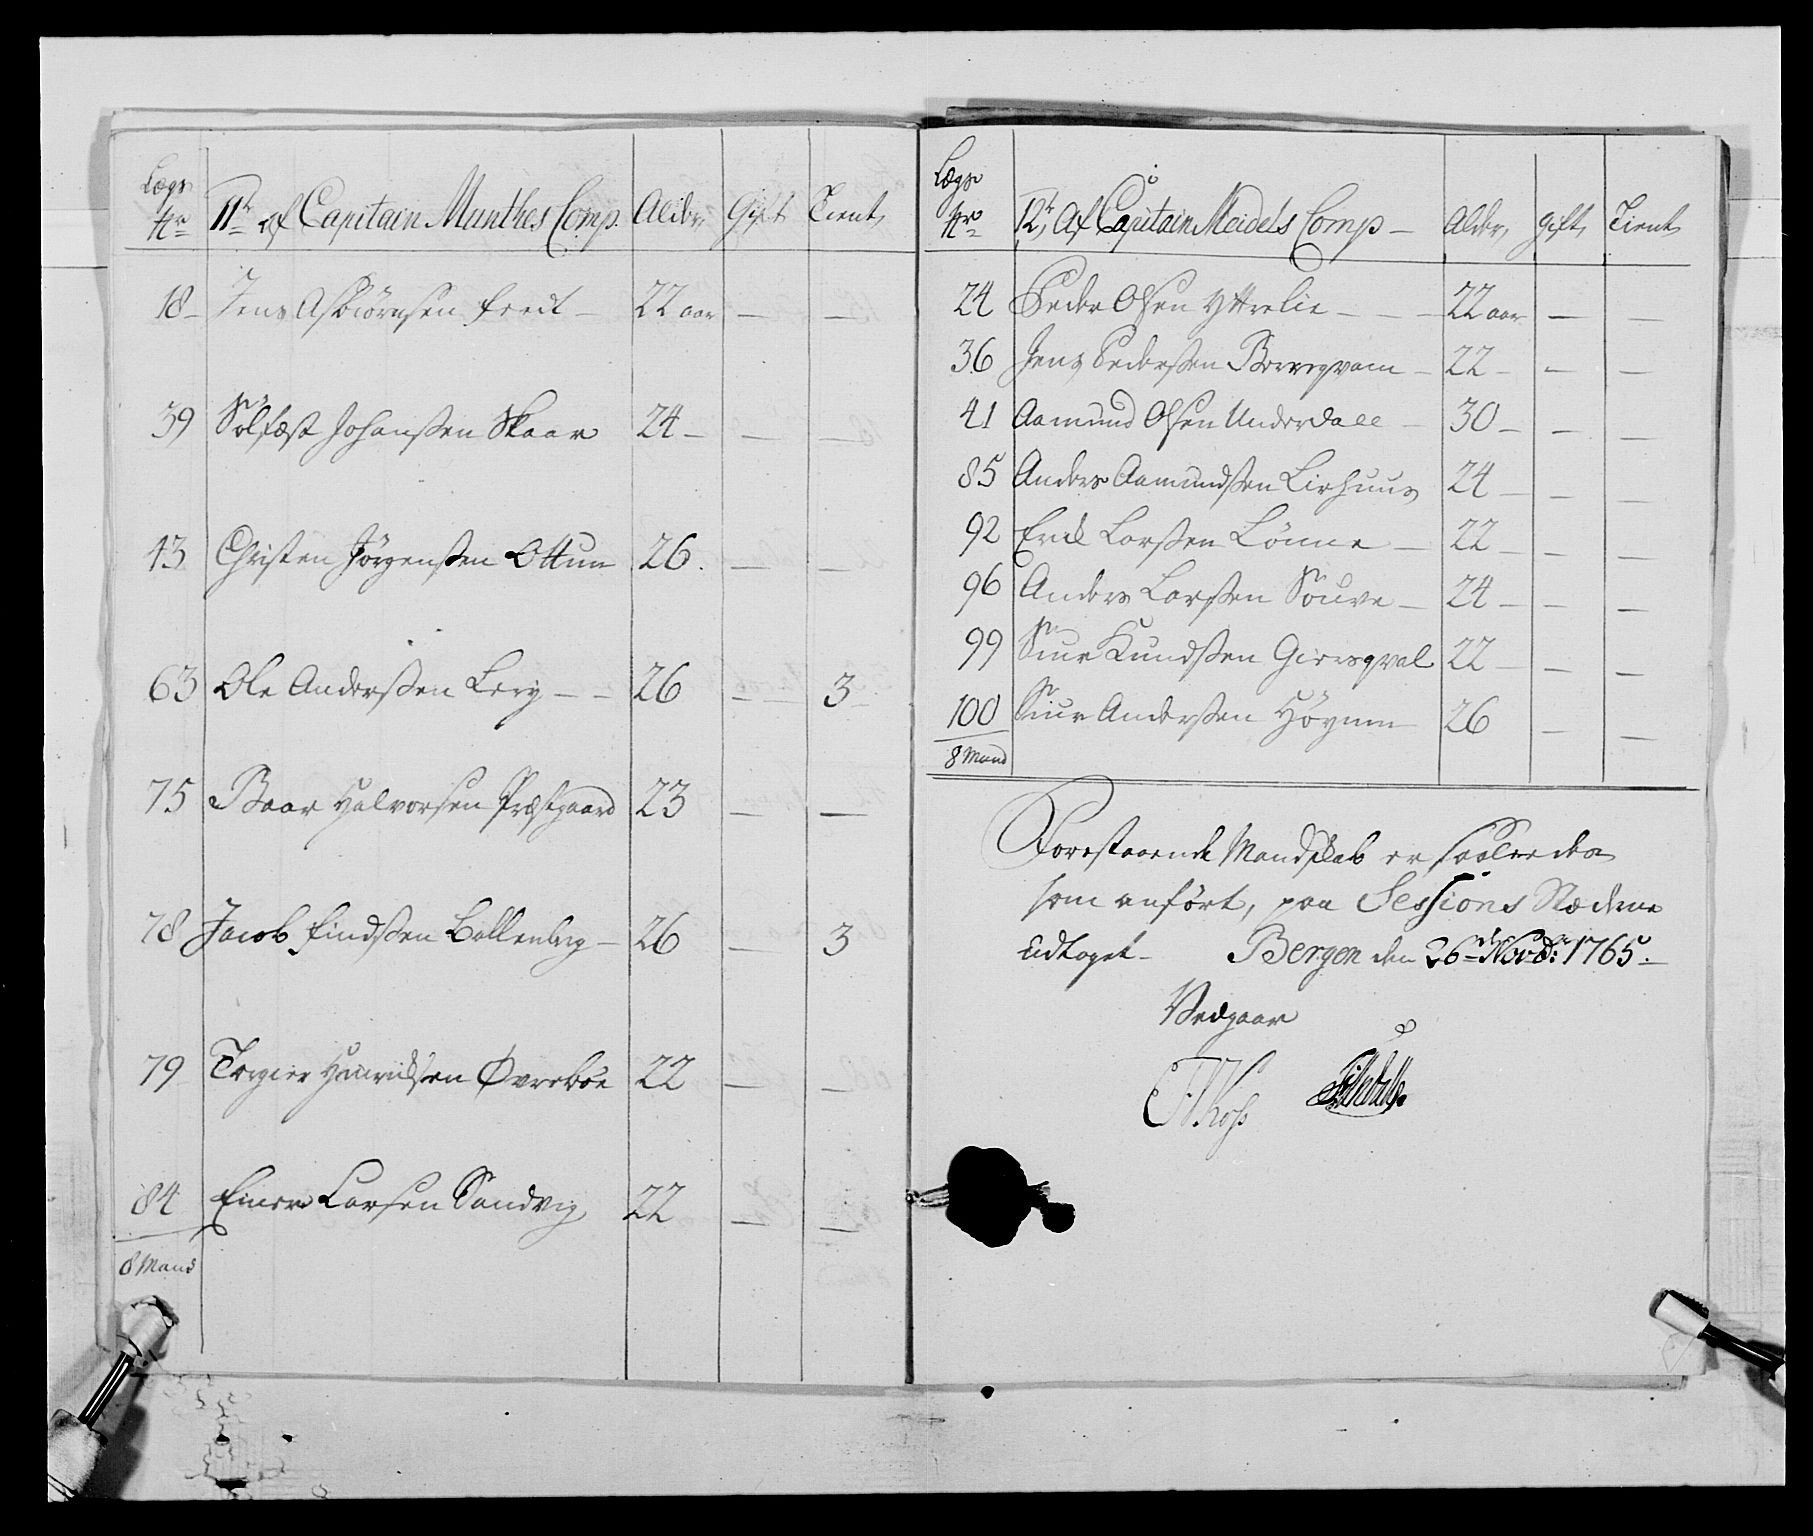 Lægs
Nr 11te af Capitain Munthes Comp. Alder, Gift Tient,
18 - Jens Asbiörnsen Eredt - 22 aar - -
39 Sölfæst Johanßen Skaar 24 - - -
43 Christen Jörgenßen Ottum 26. - -
63 Ole Anderßen Berg - - 26 - 3
75 Baar Halvorsen Præstgaard 23 - -
78 Jacob Eindßen Bollenberg - 26 - 3
79 Torgier Henrichsen Øvreböe 22 - -
84 Einer Larsen Sandvig 22 - -
8 Mand
Lægs
Nro 12te Af Capitain Meidels Comp - Alder, Gift, Tient
24 Peder Olsen Yttrelie - - - 22 aar - -
36 Jens Pederßen Borreqvam - 22 - - -
41 Aamund Olsen Underdall - 30 - - -
85 Anders Aamundßen Lirhuus 24 - - -
92 Erik Larßen Lönne - 22 - - -
96 Anders Larßen Souve - 24 - - -
99 Siur Knudßen Giersqval 22 - - -
100 Siur Anderßen Höynem 26 - -
8 Mand
Forestaaende Mandskab er saaledes
som anfört, paa Sessions Stæderne
Udtaget - Bergen den 26de Novbr: 1765. -
Vedgaar